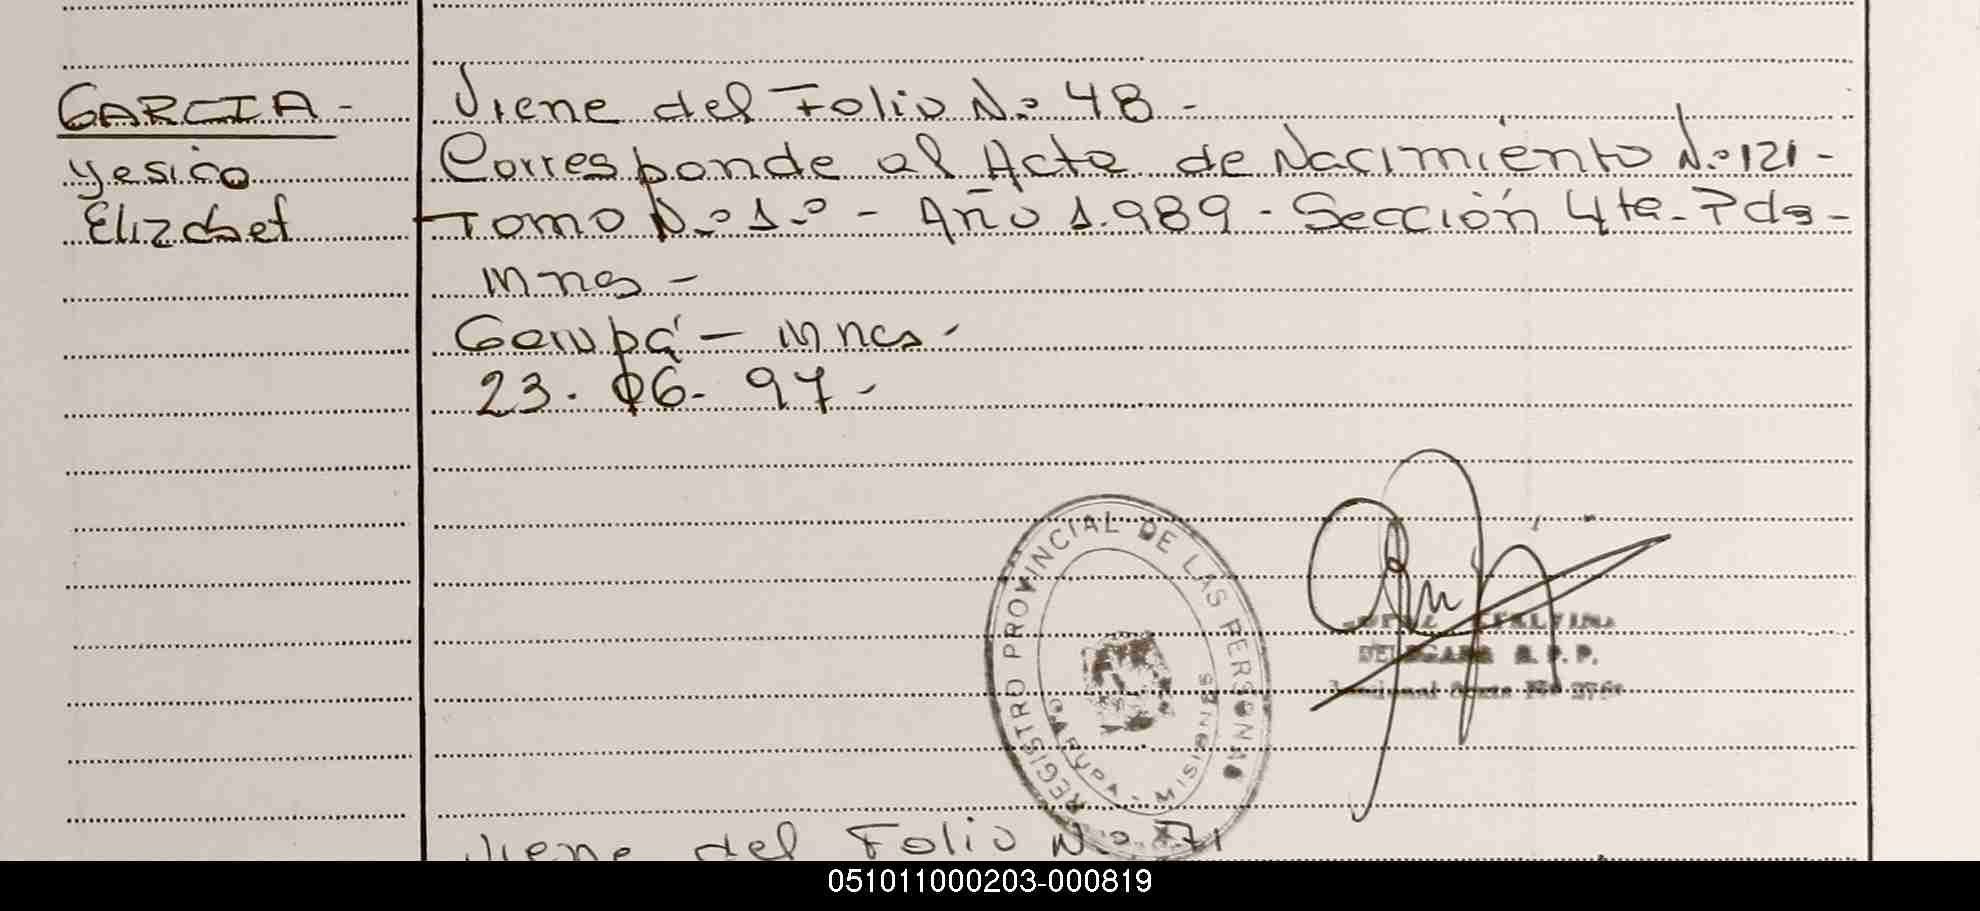 GARCIA-
Yesica
Elizabet
Viene del Folio N.º 48 -
Corresponde al Acta de Nacimiento N.º 121 -
Tomo N.º 1.º - Año 1.989 - Sección 4ta. Pdas -
Mnes -
Garupá - Mnes -
23. 06. 97 -
REGISTRO PROVINCIAL DE LAS PERSONAS
GARUPA - MISIONES
DELEGADA R. P. P.
Viene del Folio N.º
051011000203-000819